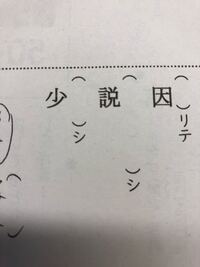 因（　）リテ
説（　）シ
少（　）シ